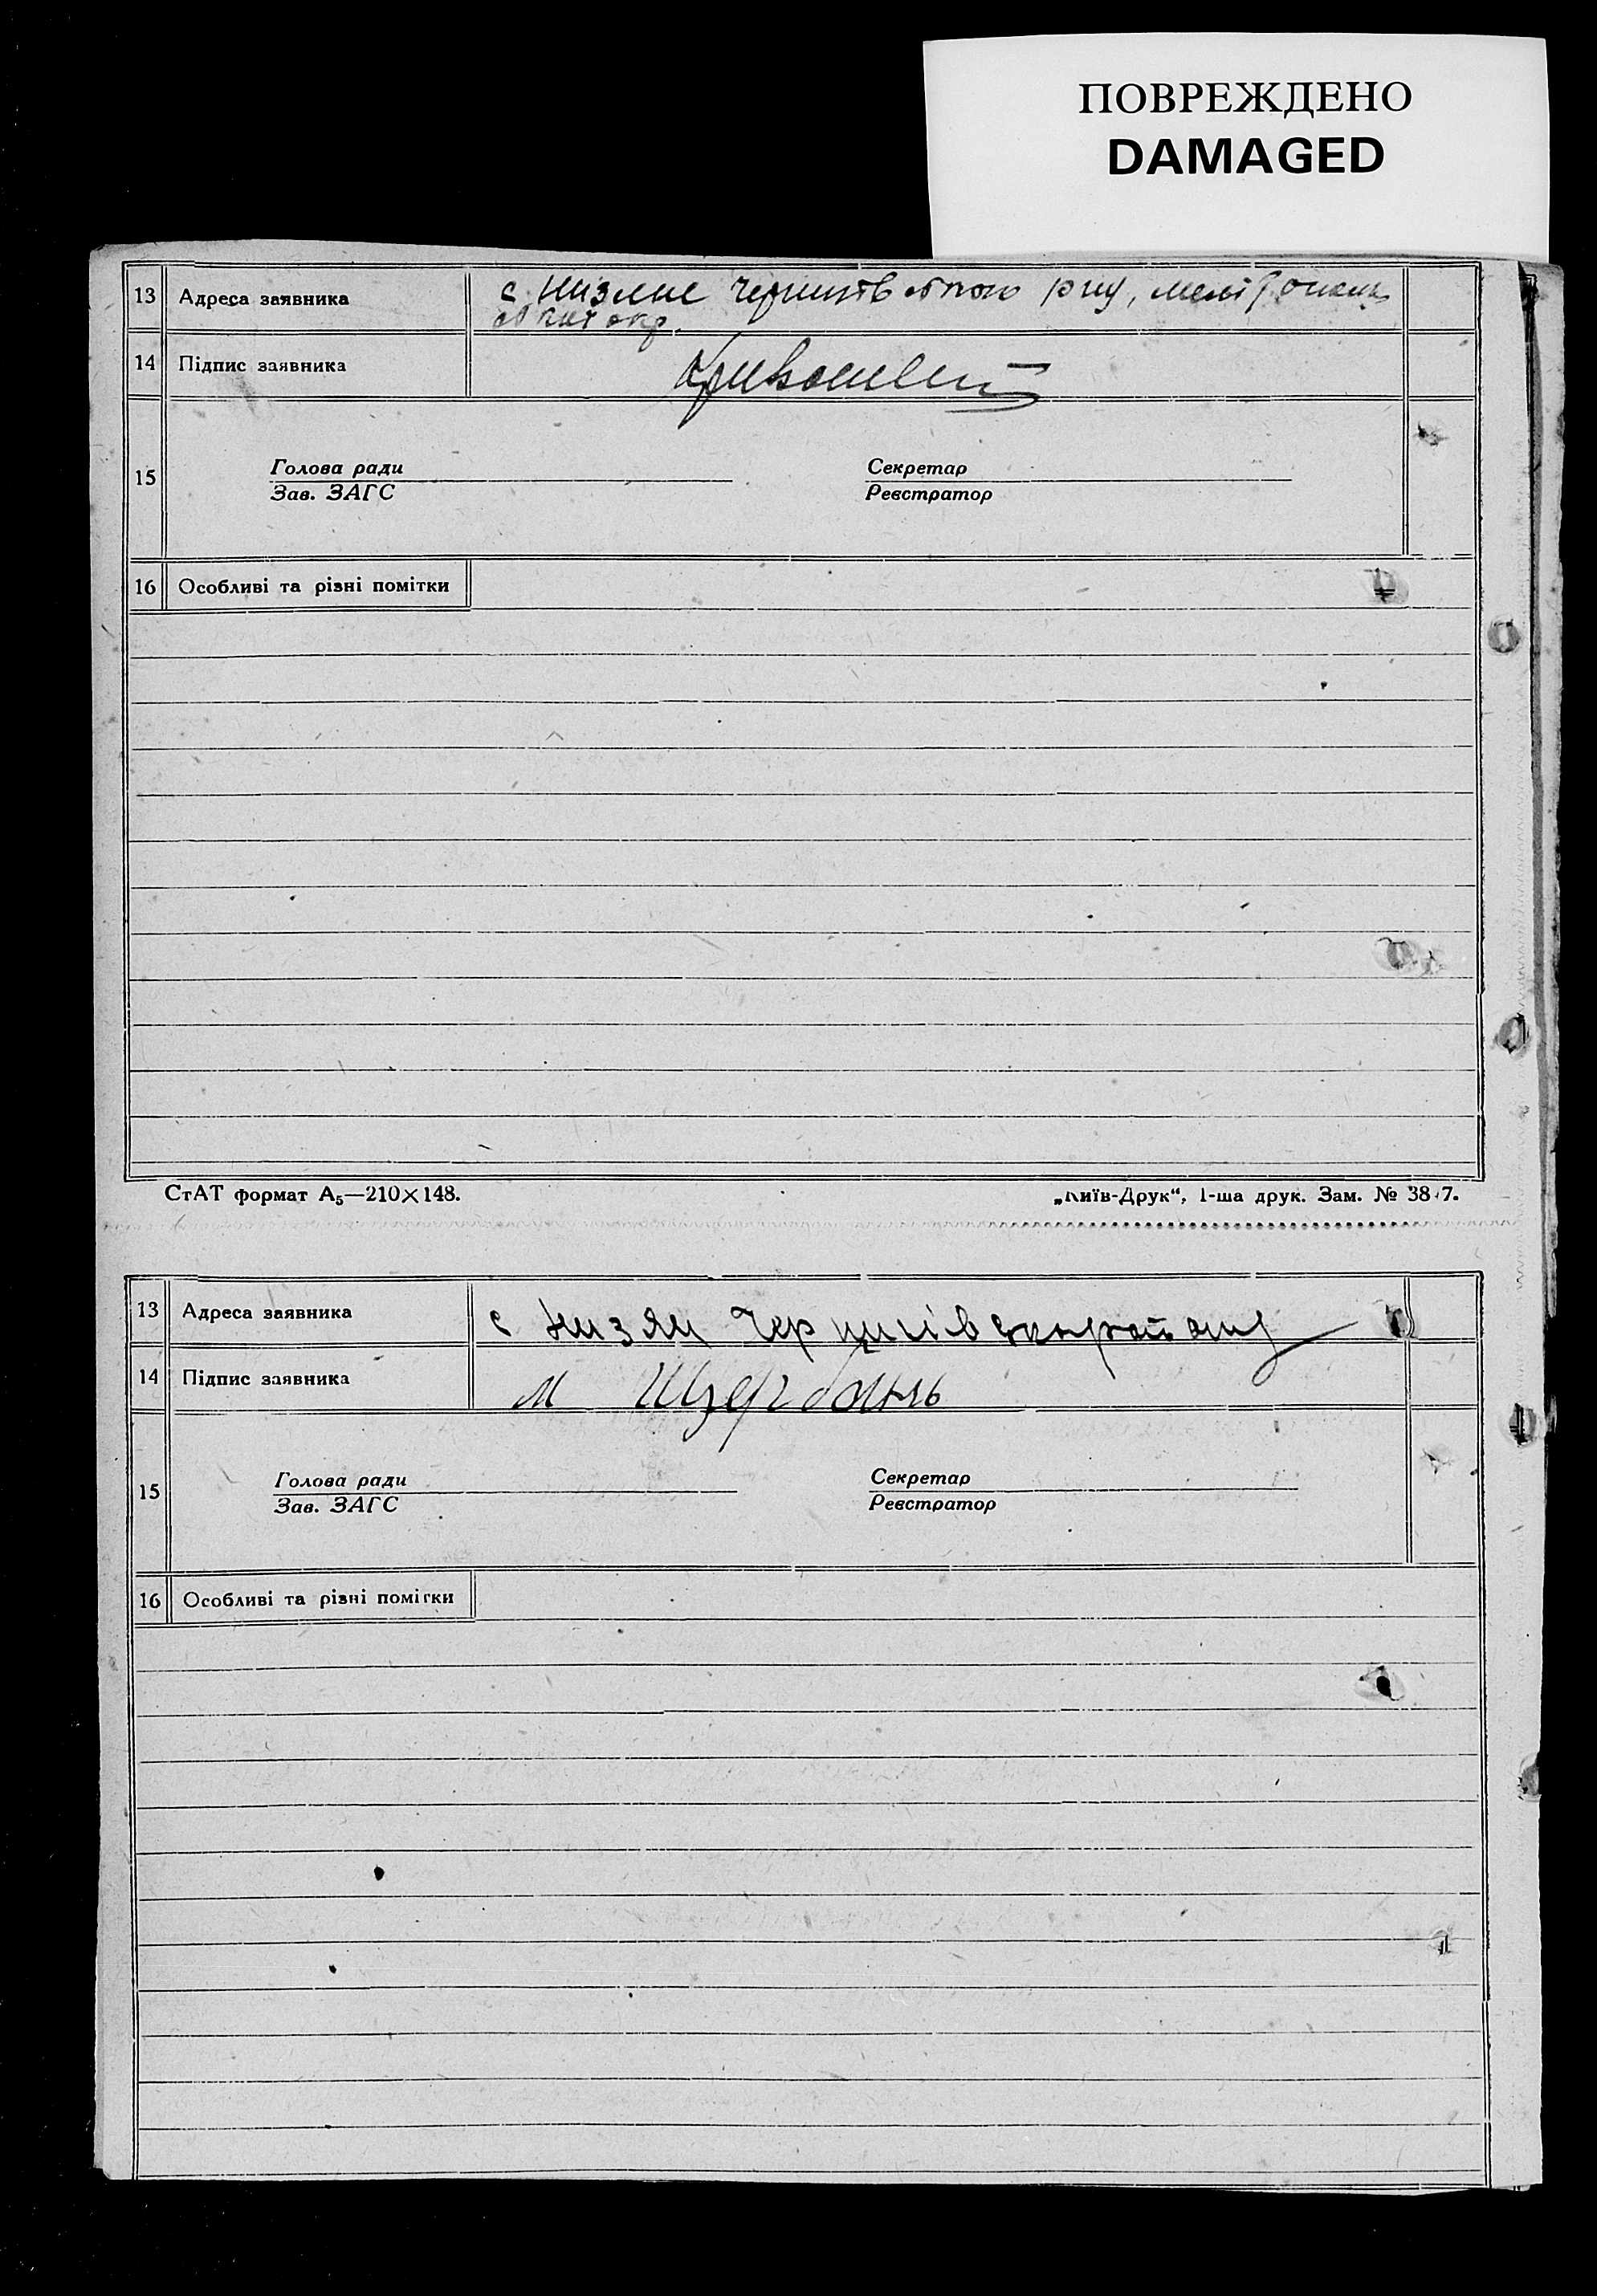 ПОВРЕЖДЕНО
DAMAGED
13 Адреса заявника с. Низяне
окр.
14 Підпис заявника
15 Голова ради Секретар
Зав. ЗАГС Реєстратор
16 Особливі та різні помітки
СтАТ формат А5—210×148. „Київ-Друк“, 1-ша друк. Зам. №
13 Адреса заявника с Низяни
14 Підпис заявника М Щербань
15 Голова ради Секретар
Зав. ЗАГС Реєстратор
16 Особливі та різні помітки